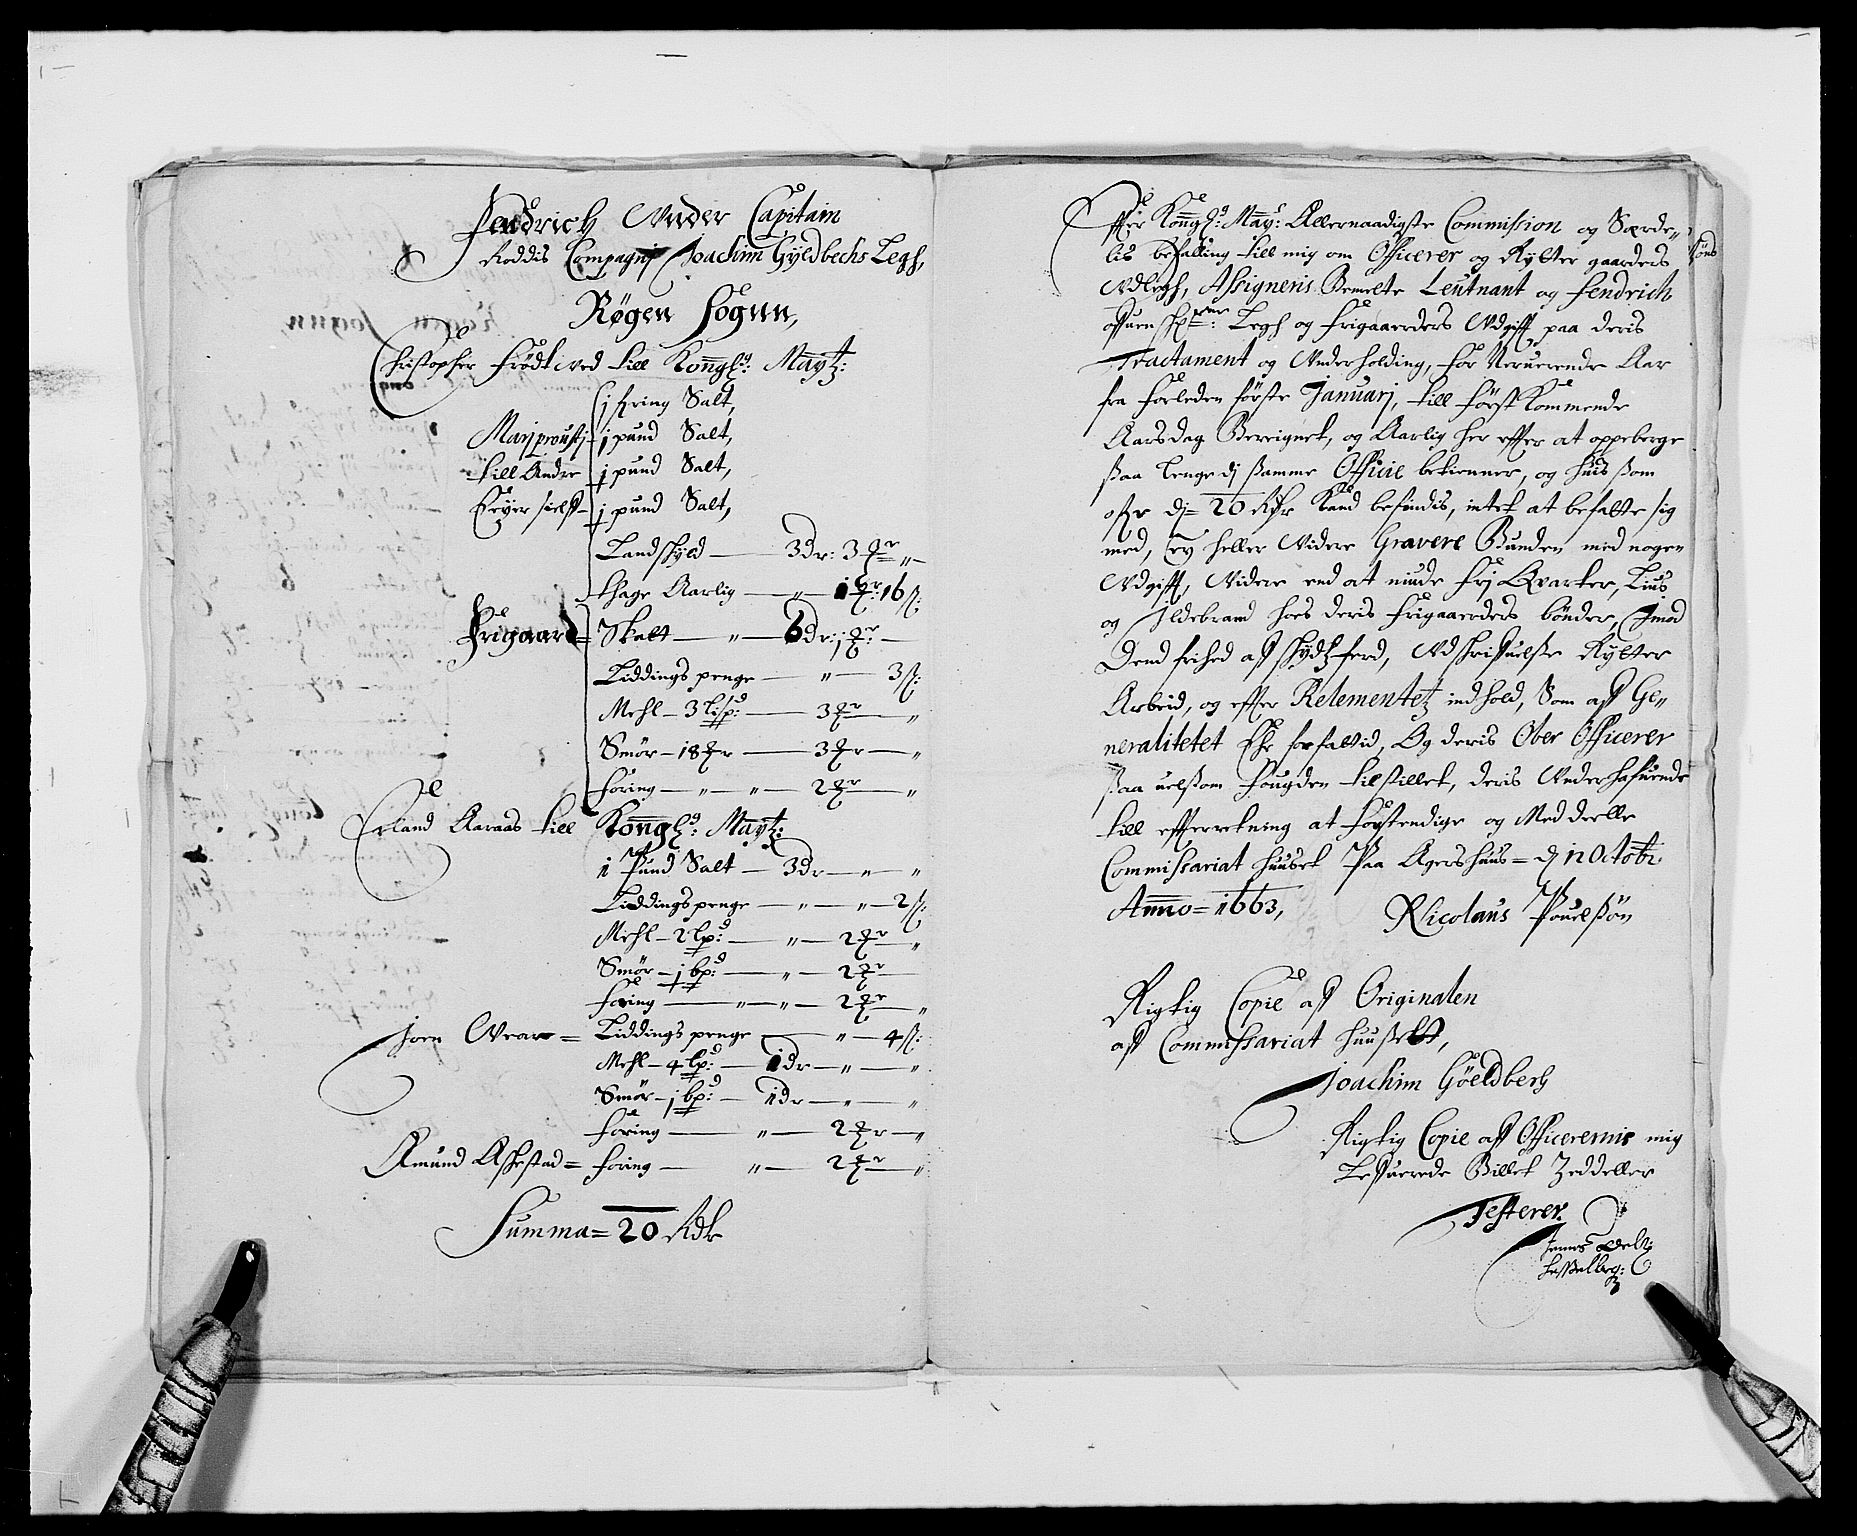 Fendrich Vnder Capitain
Roddis Compagnj Joachim Gyldbechs Legh,
Røgen Sognn,
Christopher Frødtved till Kongl: Maytz:
j fring Salt,
Marjproustj j pund Salt,
till Andre j pund Salt,
Eeyer sielff j pund Salt,
Landschyld — 3 dr: 3 ħr „ —
thage Aarlig — „ — 1 ħr: 16 ß:
Frigaard = Skatt — „ — 6 dr: j ħr —
Liddings penge — „ — 3 ß:
Mehl — 3 lisp: — 3 ħr — „
Smør — 18 ħr — 3 ħr — „
foring — „ — „ — 2 ħr — „
Erland Aaraas till Kongl: Maytz:
1 Pund Salt — 3 dr — „ — „
Liddingspenge — „ — „ — 2 ß:
Mehl — 2 lp: — „ — 2 ħr — „
Smør — j bp: — „ — 2 ħr
foring — „ — „ — 2 ħr — „
Joen = Liddings penge — „ — 4 ß:
Mehl — 4 lp: — 1 dr — „ — „
Smør — j bp: — 1 dr — „ — „
foring — „ — 2 ħr — „
Amund Askestad = foring — „ — 2 ħr — „
Summa = 20 Rdr
Effter Kongl: May: Allernaadigste Commission og Særde„
lis befalling till mig om Officerer og Rytter gaarders
Vdlegh, Assigneris Bemelte Leutnant og Fendrich
offuen Legh og Frigaarders Vdgifft paa deris
Tractament og Vnderholding, for Neruerende Aar
fra forleden første Januarj, till først Kommende
Aarsdag Bereignet, og Aarlig her effter at oppeberge
ßaa lenge dj ßamme Officie betienner, og huis ßom
ofver dj = 20 Rdr Kand befindis, intet at befatte sig
med, ey heller Videre Gravere Bunden med nogen
Vdgifft, Videre end at niude frj Qvarter, Lius
og Ildebrand hoes deris frigaarders bønder, Imod
Dend frihed aff schydtzferd, Vdschriffuelse Rytter
Arbeid, og effter Relementetz indhold, Som aff Ge„
neralitetet Ehr forfattid, Og deris Ober Officerer
ßaa uelßom Fougden tilstillet, deris Vnderhafuende
till efftterretning at forstendige og Meddeelle
Commissariat huuset Paa Agershuus = dj 12 Octobr:
Anno = 1663,
Nicolaus Pouelßøn
Rigtig Copie aff Originalen
aff Commissariat huußett,
Joachim Göeldberg
Rigtig Copie aff Officerernis mig
Leffuerede Billet Zeddeller
Testerer